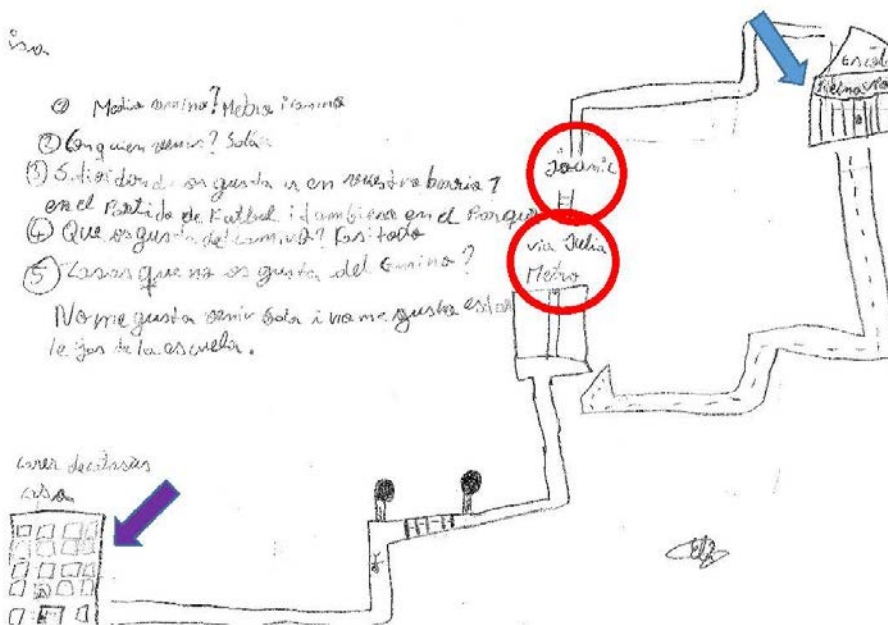 ① Medio camino? Metro i camino
② Con quien venis? Sola
③ Sitio donde os gusta ir en vuestro barrio?
en el Partido de Futbol i tambien en el Parque
④ Que os gusta del camino? Casi todo
⑤ Cosas que no os gusta del camino?
No me gusta venir sola i no me gusta estar
lejos de la escuela.
Joanic
via Julia
Metro
Escola
carrer de
casa